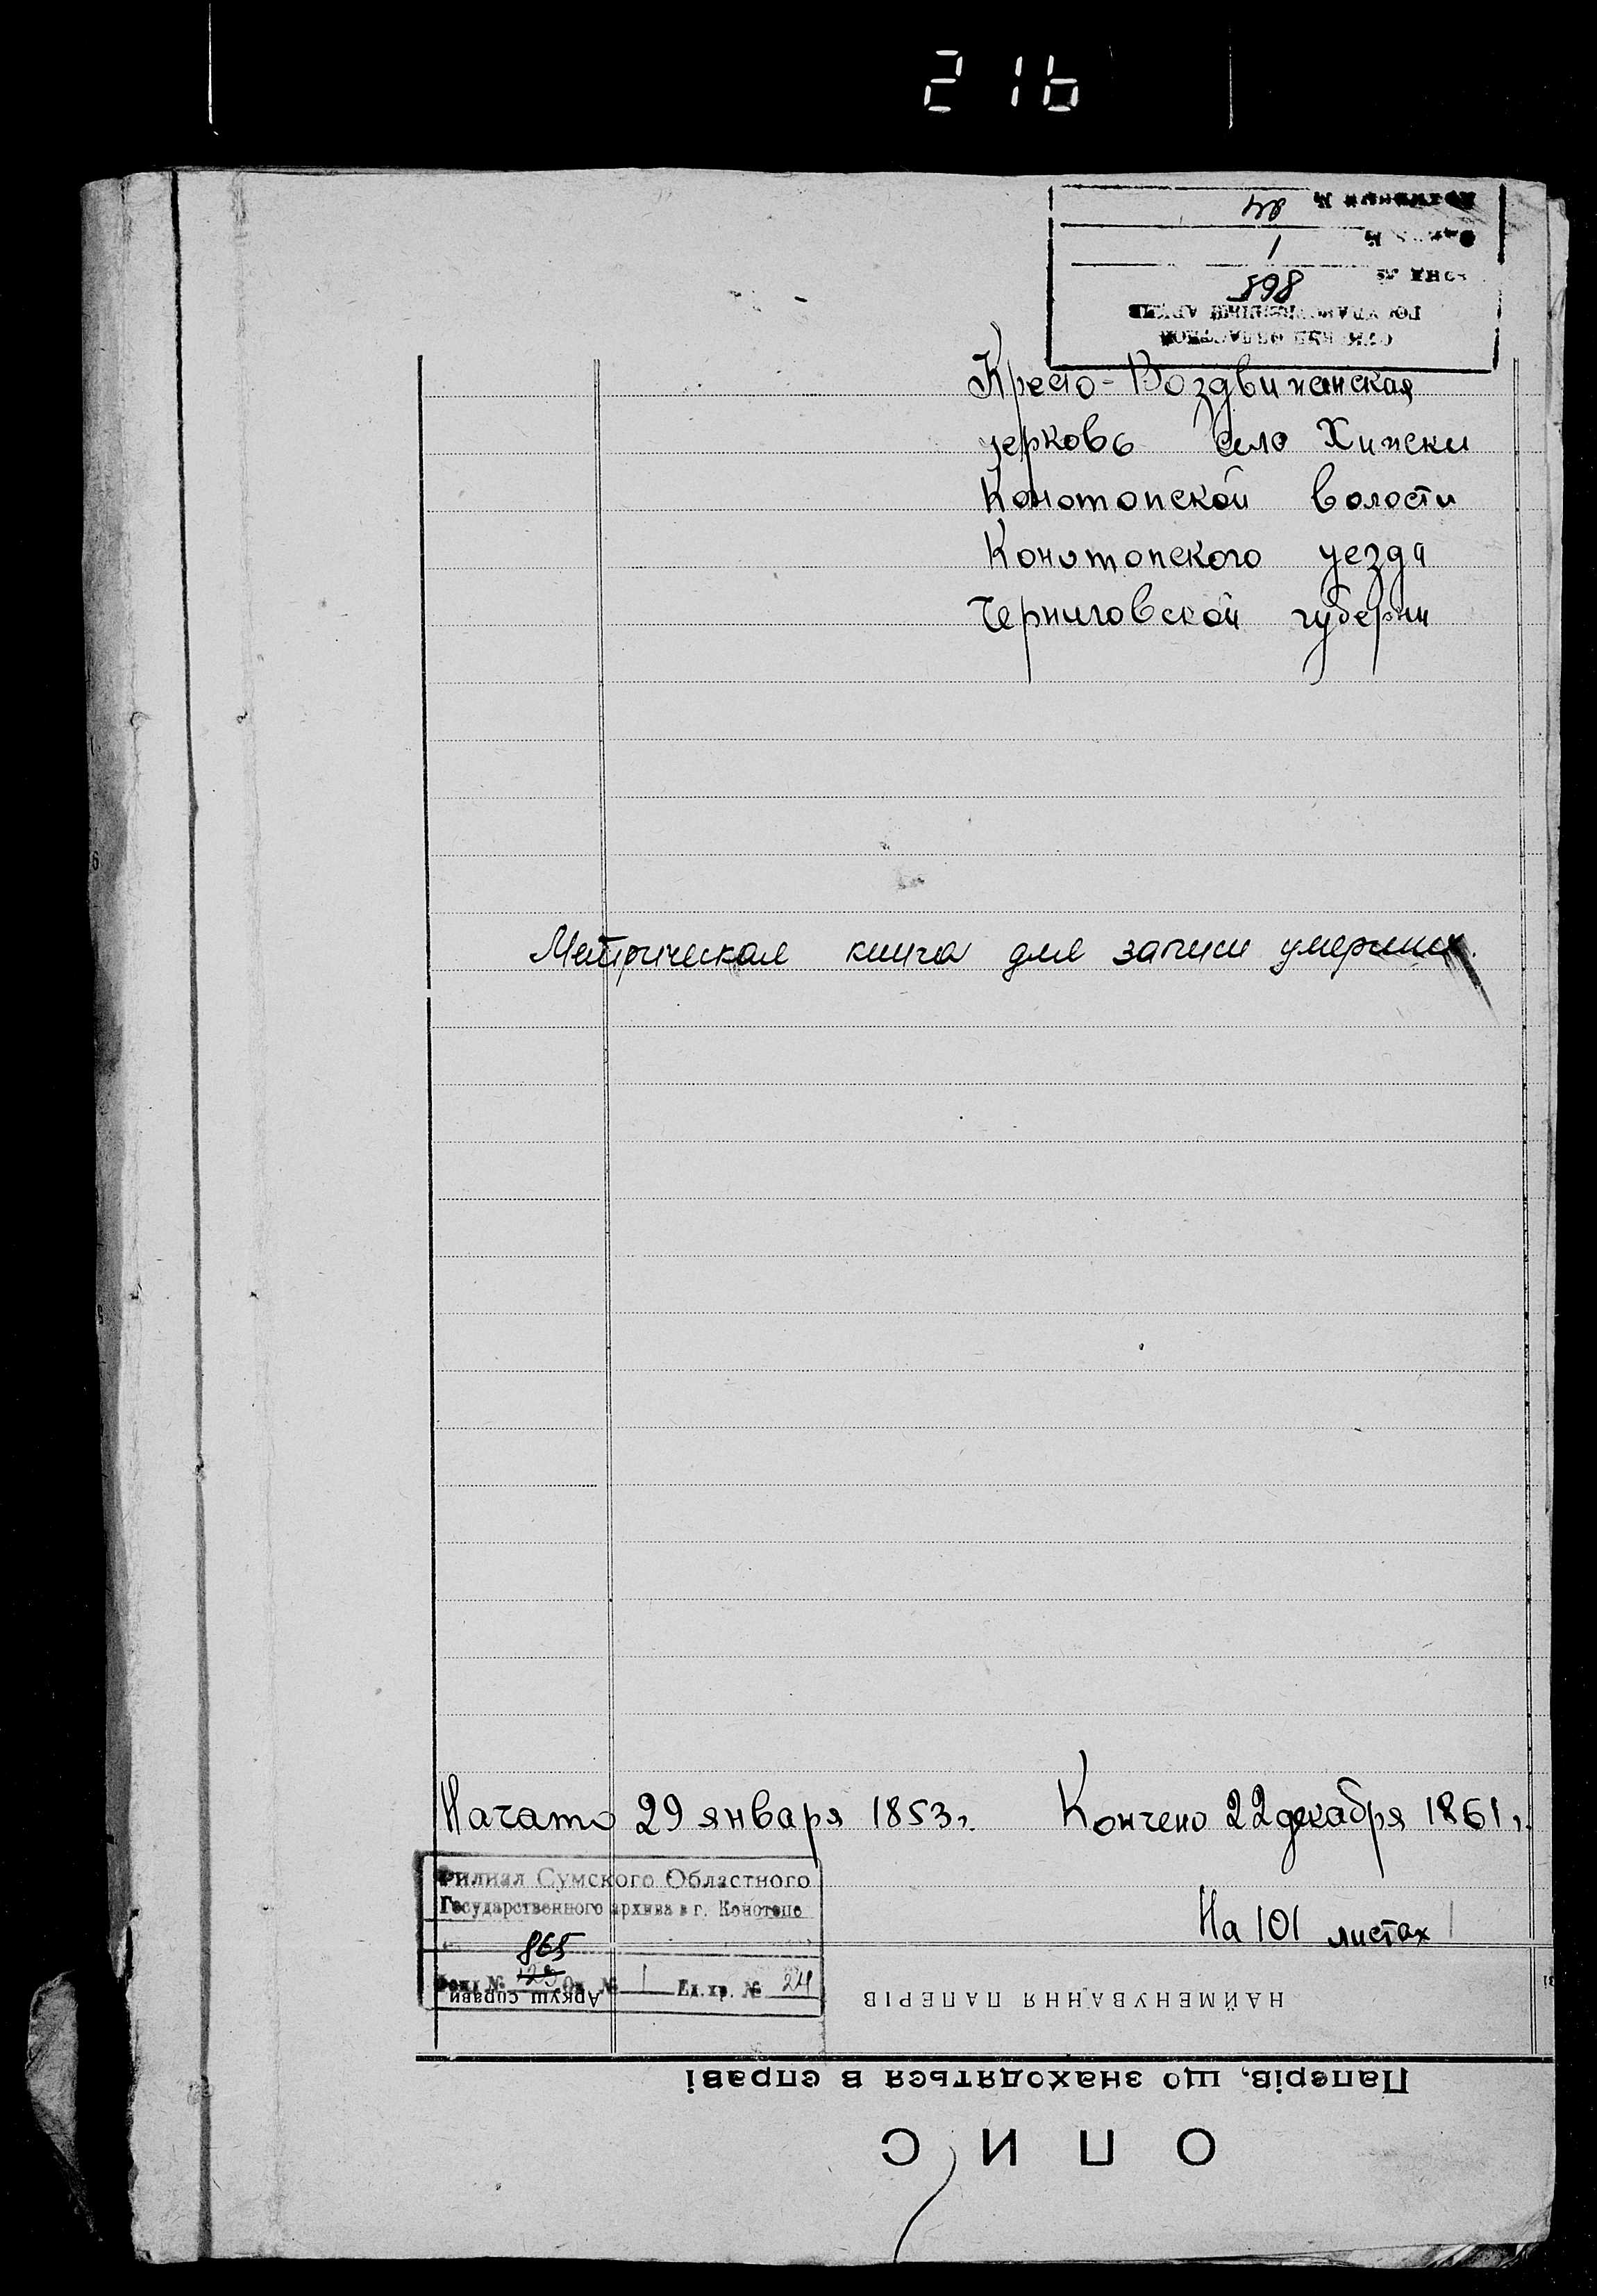 216
598
1
24
Кресто-Воздвиженская
церковь село Хижки
Конотопской волости
Конотопского уезда
Черниговской губерни
Метрическая книга для записи умерших
Начато 29 января 1853 г. Кончено 22 декабря 1861 г.
Филиал Сумского Областного
Государственного архива в г. Конотопе
На 101 листах
865
Фонд № 129 Оп. № 1 Ед. хр. № 24
Аркуш справи
НАЙМЕНУВАННЯ ПАПЕРІВ
Паперів, що знаходяться в справі
ОПИС